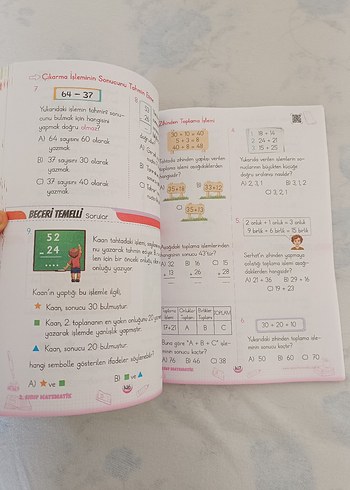 Çıkarma İşleminin Sonucunu Tahmin
7
64 – 37
Yukarıdaki işlemin tahmini sonu-
cunu bulmak için hangisini
yapmak doğru olmaz?
A) 64 sayısını 60 olarak
yazmak
B) 37 sayısını 30 olarak
yazmak
C) 37 sayısını 40 olarak
yazmak
BECERİ TEMELLİ Sorular
9
52
24
Kaan tahtadaki işlemi
Kaan'ın yaptığı bu işlemle ilgili,
Kaan, sonucu 30 bulmuştur.
Kaan, 2. toplananın en yakın onluğunu 20
yazarak işlemde yanlışlık yapmıştır.
Kaan, sonucu 20 bulmuştur.
hangi sembolle gösterilen ifadeler söylenebilir?
A) ★ ve ■
B) ■ ve ▲
2. SINIF MATEMATİK
8
Zihinden Toplama İşlemi
30 + 10 = 40
5 + 3 = 8
40 + 8 = 48
Yukarıda zihinden toplama yapılan
toplama işlemi aşağıdakilerden
hangisidir?
A) 35+18
B) 33+12
C) 35+13
Aşağıdaki toplama işlemlerinden
hangisinin sonucu 45'tir?
A) 32
+ 13
B) 16
+ 26
C) 15
+ 28
Toplama İşlemi
Onluklar Toplamı
Birlikler Toplamı
TOPLAM
17+21
A
B
C
Buna göre "A + B + C" işle-
minin sonucu kaçtır?
A) 76 B) 46 C) 38
4
1. 18 + 14
2. 24 + 21
3. 15 + 25
Yukarıda verilen işlemlerin so-
nuçlarının büyükten küçüğe
doğru sıralanışı nasıldır?
A) 2, 3, 1
B) 3, 1, 2
C) 3, 2, 1
5
2 onluk + 1 onluk = 3 onluk
9 birlik + 6 birlik = 15 birlik
Serhat'ın zihinden yapmaya
çalıştığı toplama işlemi aşağı-
dakilerden hangisidir?
A) 21 + 36
B) 29 + 16
C) 19 + 23
6
30 + 20 + 10
Yukarıdaki zihinden toplama işle-
minin sonucu kaçtır?
A) 50 B) 60 C) 70